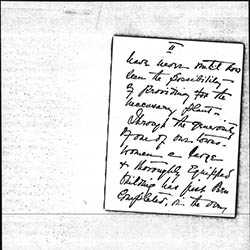 II
have never until now
been the possibility
of providing for the
necessary
Through the generosity
of one of our towns-
women a large
& thoroughly Equipped
building has just been
Completed, in the